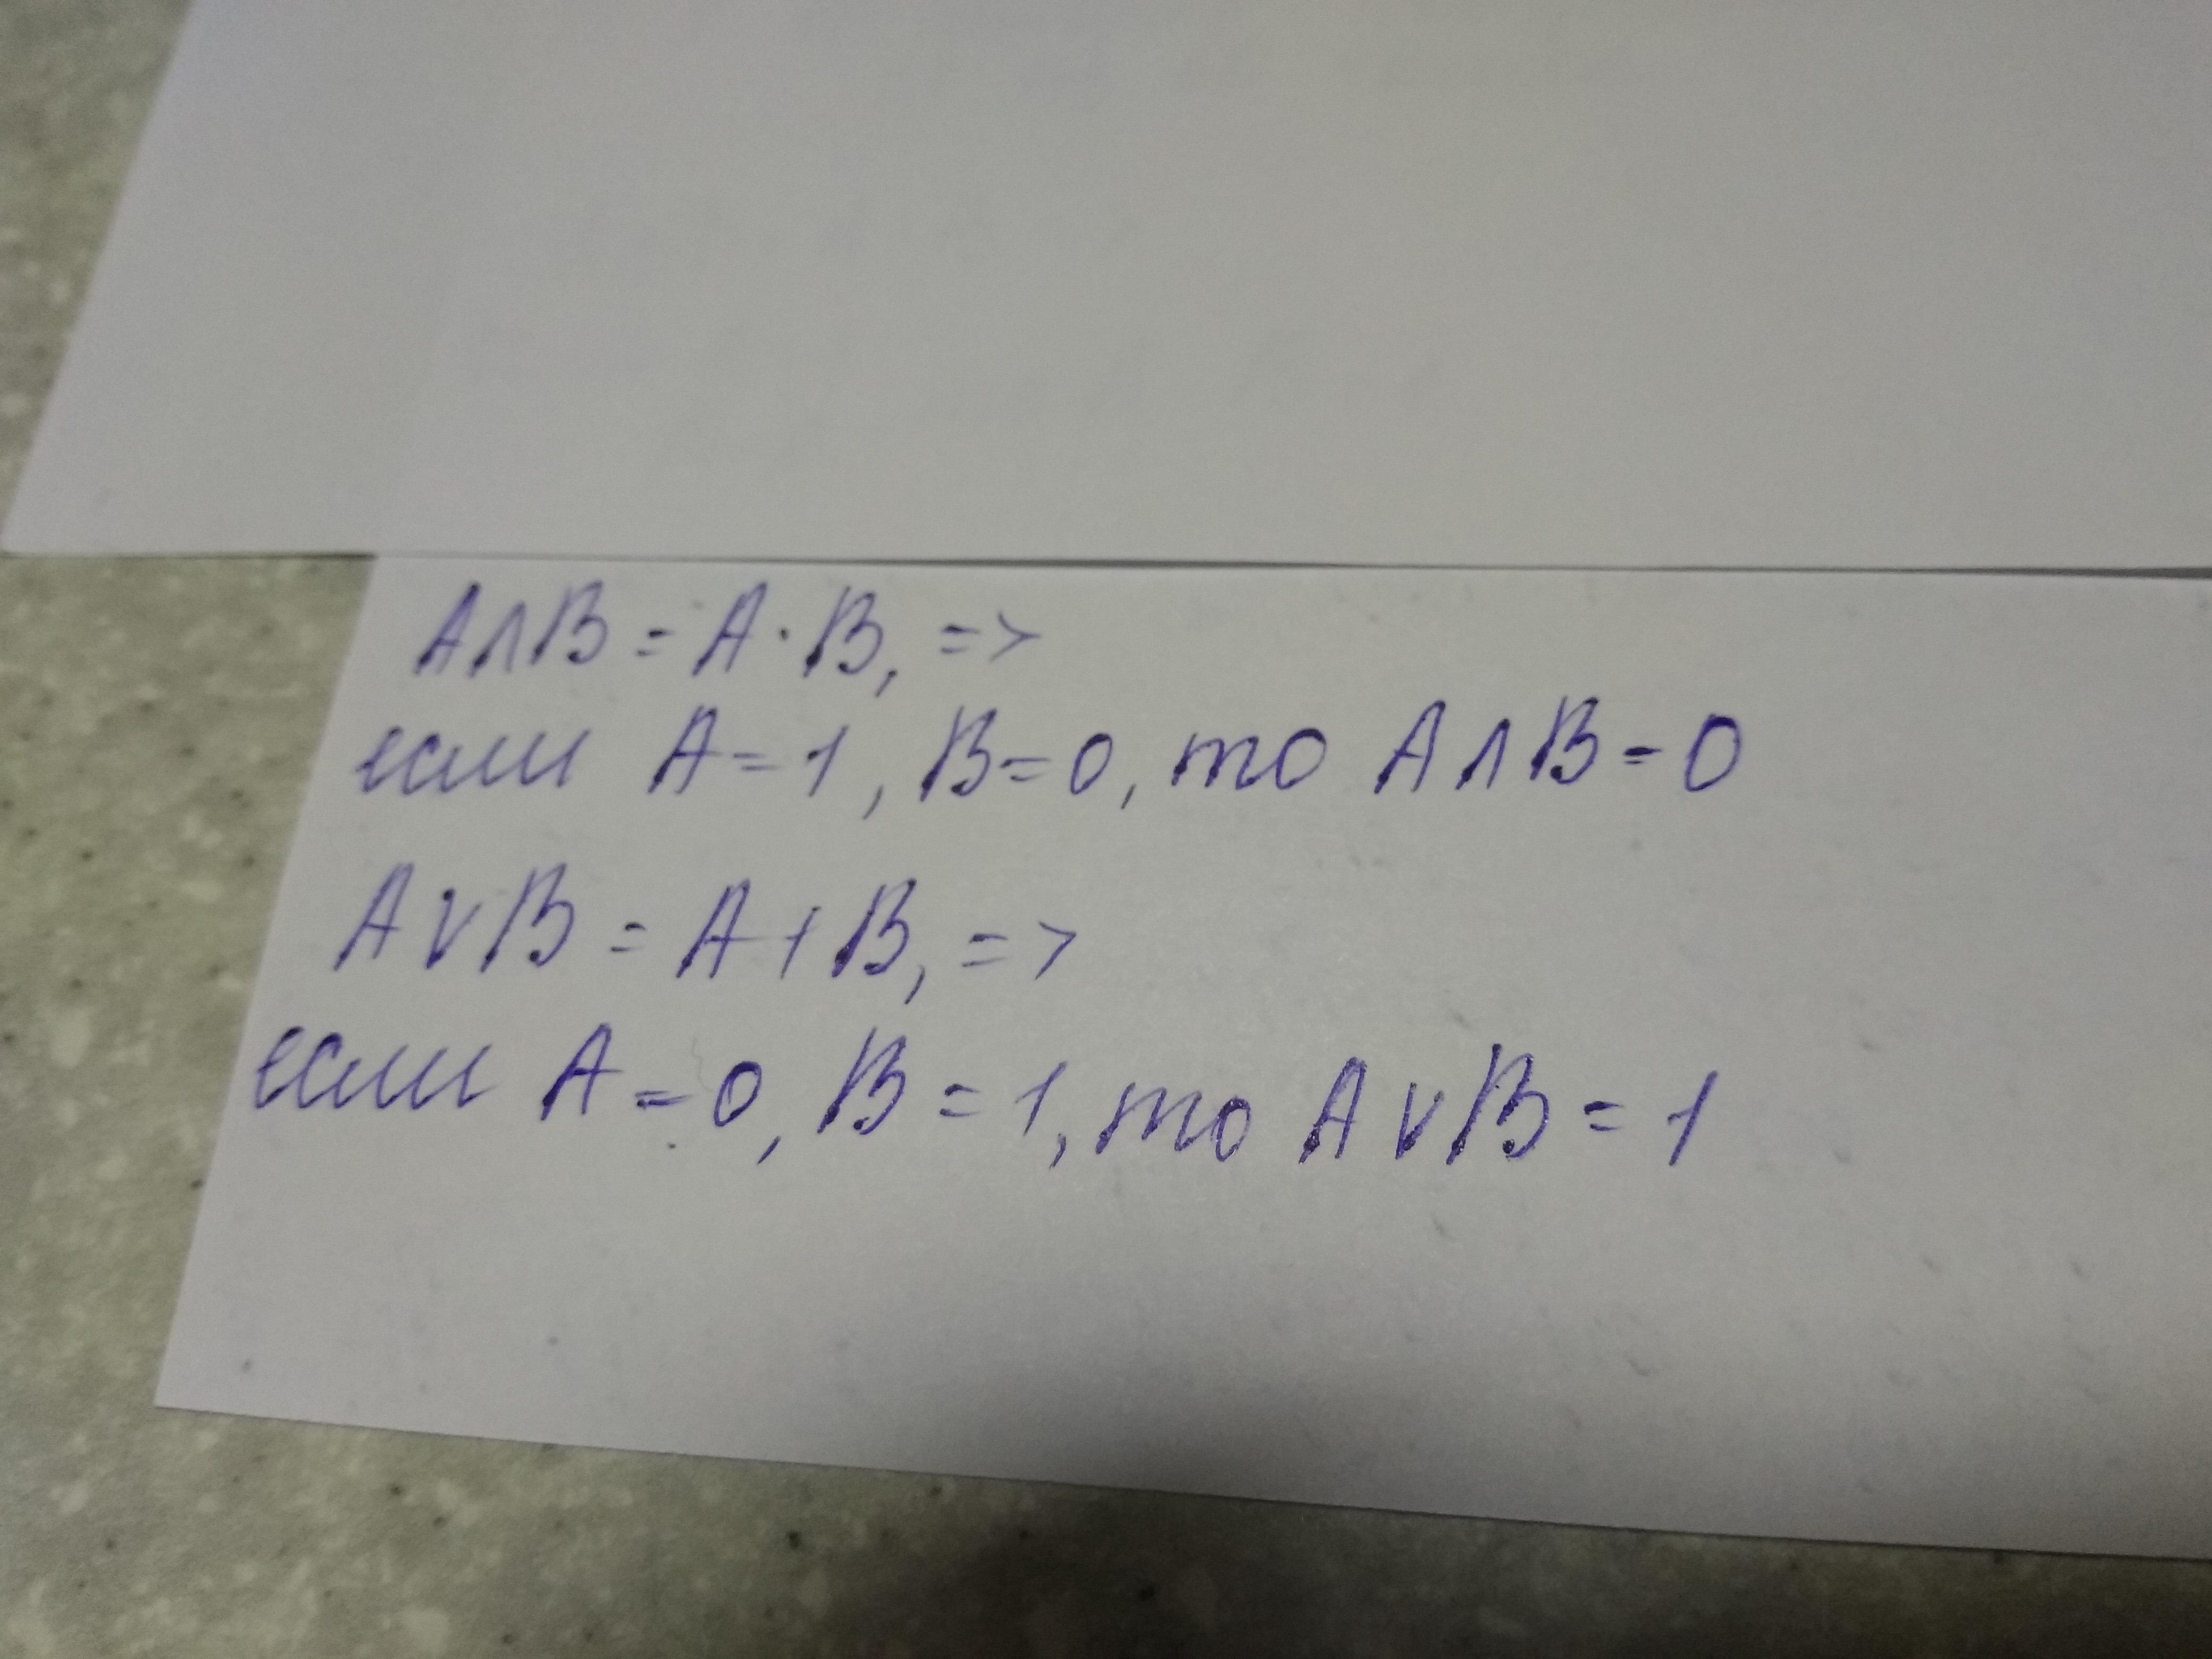 A∧B = A·B, =>
если A=1, B=0, то A∧B=0
A∨B = A+B, =>
если A=0, B=1, то A∨B=1